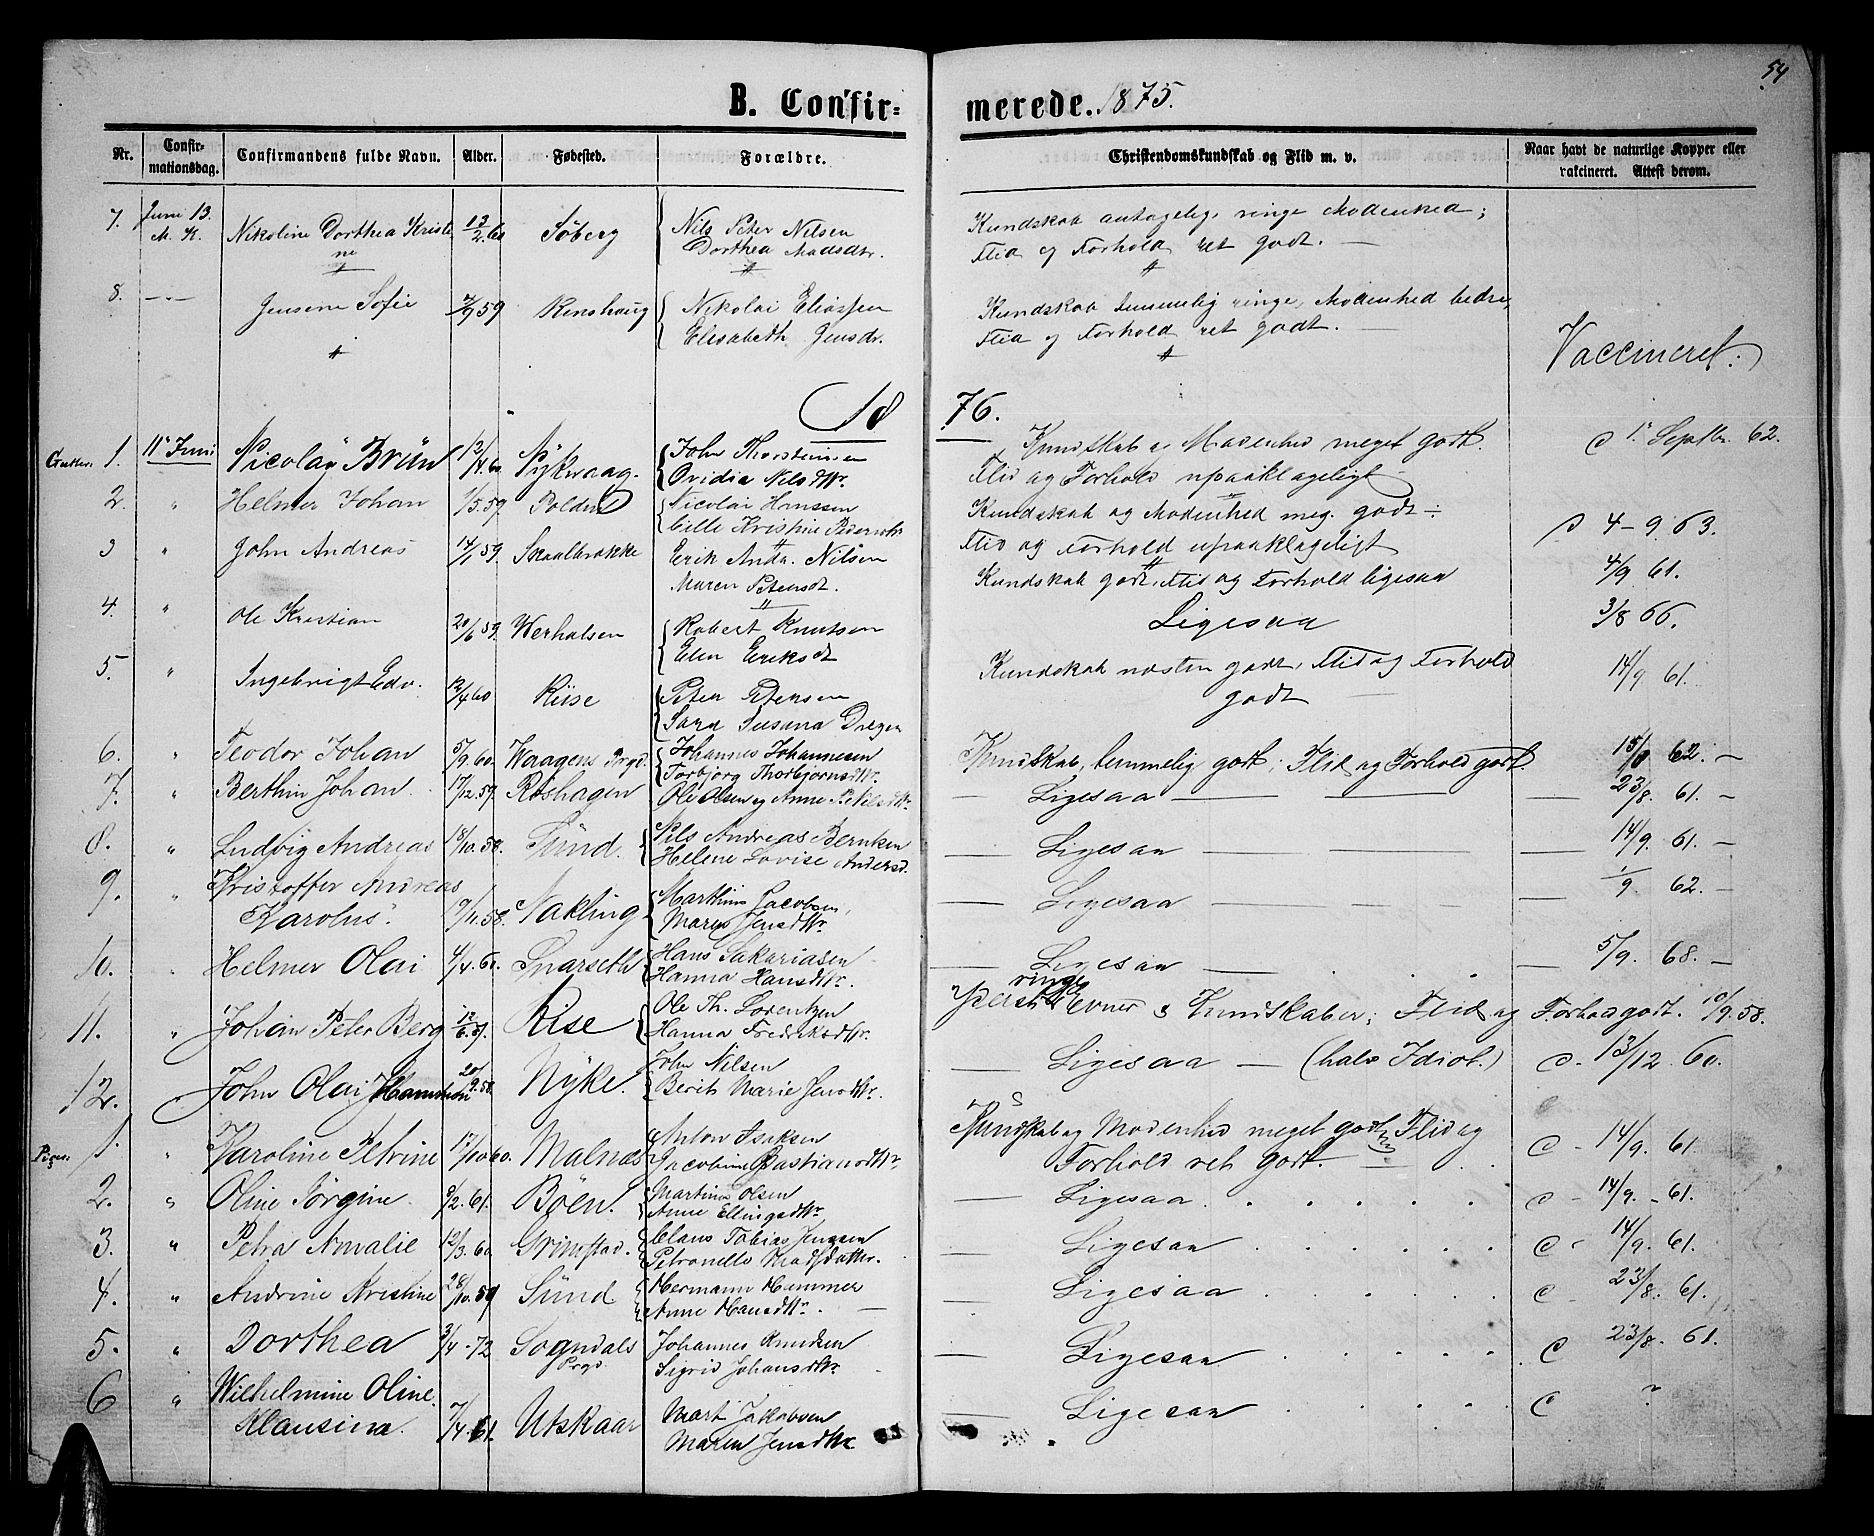 54
B. Confirmerede. 1875.
Nr. Confirmationsdag. Confirmandens fulde Navn. Alder. Fødested. Forældre. Christendomskundskab og Flid m. v. Naar havt de naturlige Kopper eller vakcineret. Attest derom.
7. Juni 13. M. K. Nikoline Dorthea Kristi- 12/2.60 Søberg Nils Peter Nilsen Kundskab antagelig, ringe Modenhed;
ne Dorthea Madsdtr. Flid og Forhold ret godt. —
8. — Jensine Sofie 7/9 59 Nikolai Eliassen Kundskab temmelig ringe, Modenhed bedre,
Elisabeth Jensdr. Flid og Forhold ret godt. —
Vaccineret.
1876.
Gutter. 1. 11te Juni Nicolay Brün 12/4.60 Nykvaag. John Thorsteinsen Kundskab og Modenhed meget godt. c 1. Septbr. 62.
Ovidia Nilsdttr. Flid og Forhold upaaklageligt
2. " Helmer Johan 1/5.59. Nicolai Hanssen Kundskab og Modenhed meg. godt. 4-9.63.
Cille Kristine Flid og Forhold upaaklageligt
3 " John Andreas 14/1 59. Skaalbrække Erik Andr. Nilsen Kundskab godt, Flid og Forhold ligesaa 4/9 61.
Maren Petersdt.
4. " Ole Kristian 20/6 59. Werhalsen Robert Knutsen Ligesaa 3/8 66.
Elen Eriksdt
5. " Ingebrigt Edv. 12/4 60 Riise Peter Petersen Kundskab næsten godt, Flid og Forhold 14/9 61.
Sara Susana Dreyer godt
6. " Teodor Johan 5/9.60. Waagens Prgd. Johannes Johannesen Kundskab, temmelig godt; Flid og Forhold godt. 15/8 62. —
Torbjørg Thorbjørnsdttr.
7. " Berthin Johan. 17/12.59. Røshagen Ole Olsen og Anne P. Nilsdttr. — Ligesaa — 23/8. 61. —
8. " Ludvig Andreas 18/10.58. Sünd. Nils Andreas Berntsen — Ligesaa — 14/9. 61. —
Helene Lovise Andersd.
9. " Kristoffer Andreas
Karolus. 9/11.58. Nakling Marthin Jacobsen, — Ligesaa — 1/9 62. —
Maren Jensdttr.
10. " Helmer Olai 4/4.60. Snarseth Hans Sakariasen — Ligesaa — 5/9. 68. —
Hanna Hansdttr.
11. " Johan Peter Berg 12/6.59. Rise Ole Th. Lorentzen Yderst ringe Evner & Kundskaber; Flid og Forhold godt. 10/9.58.
Hanna Fredriksdttr.
12. John Olai Hammer 20/9.58. Nyke. John Nilsen — Ligesaa — (halv Idiot.) c. 13/12.60.
Berith Marie Jensdttr.
Piger. 1. " Karoline Petrine 17/10 60. Malnes Anton Isaksen Kundskab og Modenhed meget godt, Flid og c - 14/9. 61.
Jacobine Bastiansdttr. Forhold ret godt. —
2. " Oline Jørgine. 8/2.61. Böen. Martinus Olsen — Ligesaa. c - 14/9. - 61.
Anne Ellingsdttr.
3. " Petra Amalie 12/3.60. Grimstad. Claus Tobias Jenssen — Ligesaa c - 14/9. 61.
Petronelle Madsdatter.
4. " Andrine Kristine 28/10.59 Sünd Hermann Hammer — Ligesaa c - 23/8. 61.
Anne Hansdttr.
5. " Dorthea 3/4.72 Sogndals Johannes Knudsen — Ligesaa c 23/8. 61.
Prgd. Sigrid Johansdttr.
6 " Wilhelmine Oline
Klausina. 7/4.61. Utskaar Mart. Jakobsen — Ligesaa c ?
Maren Jensdttr